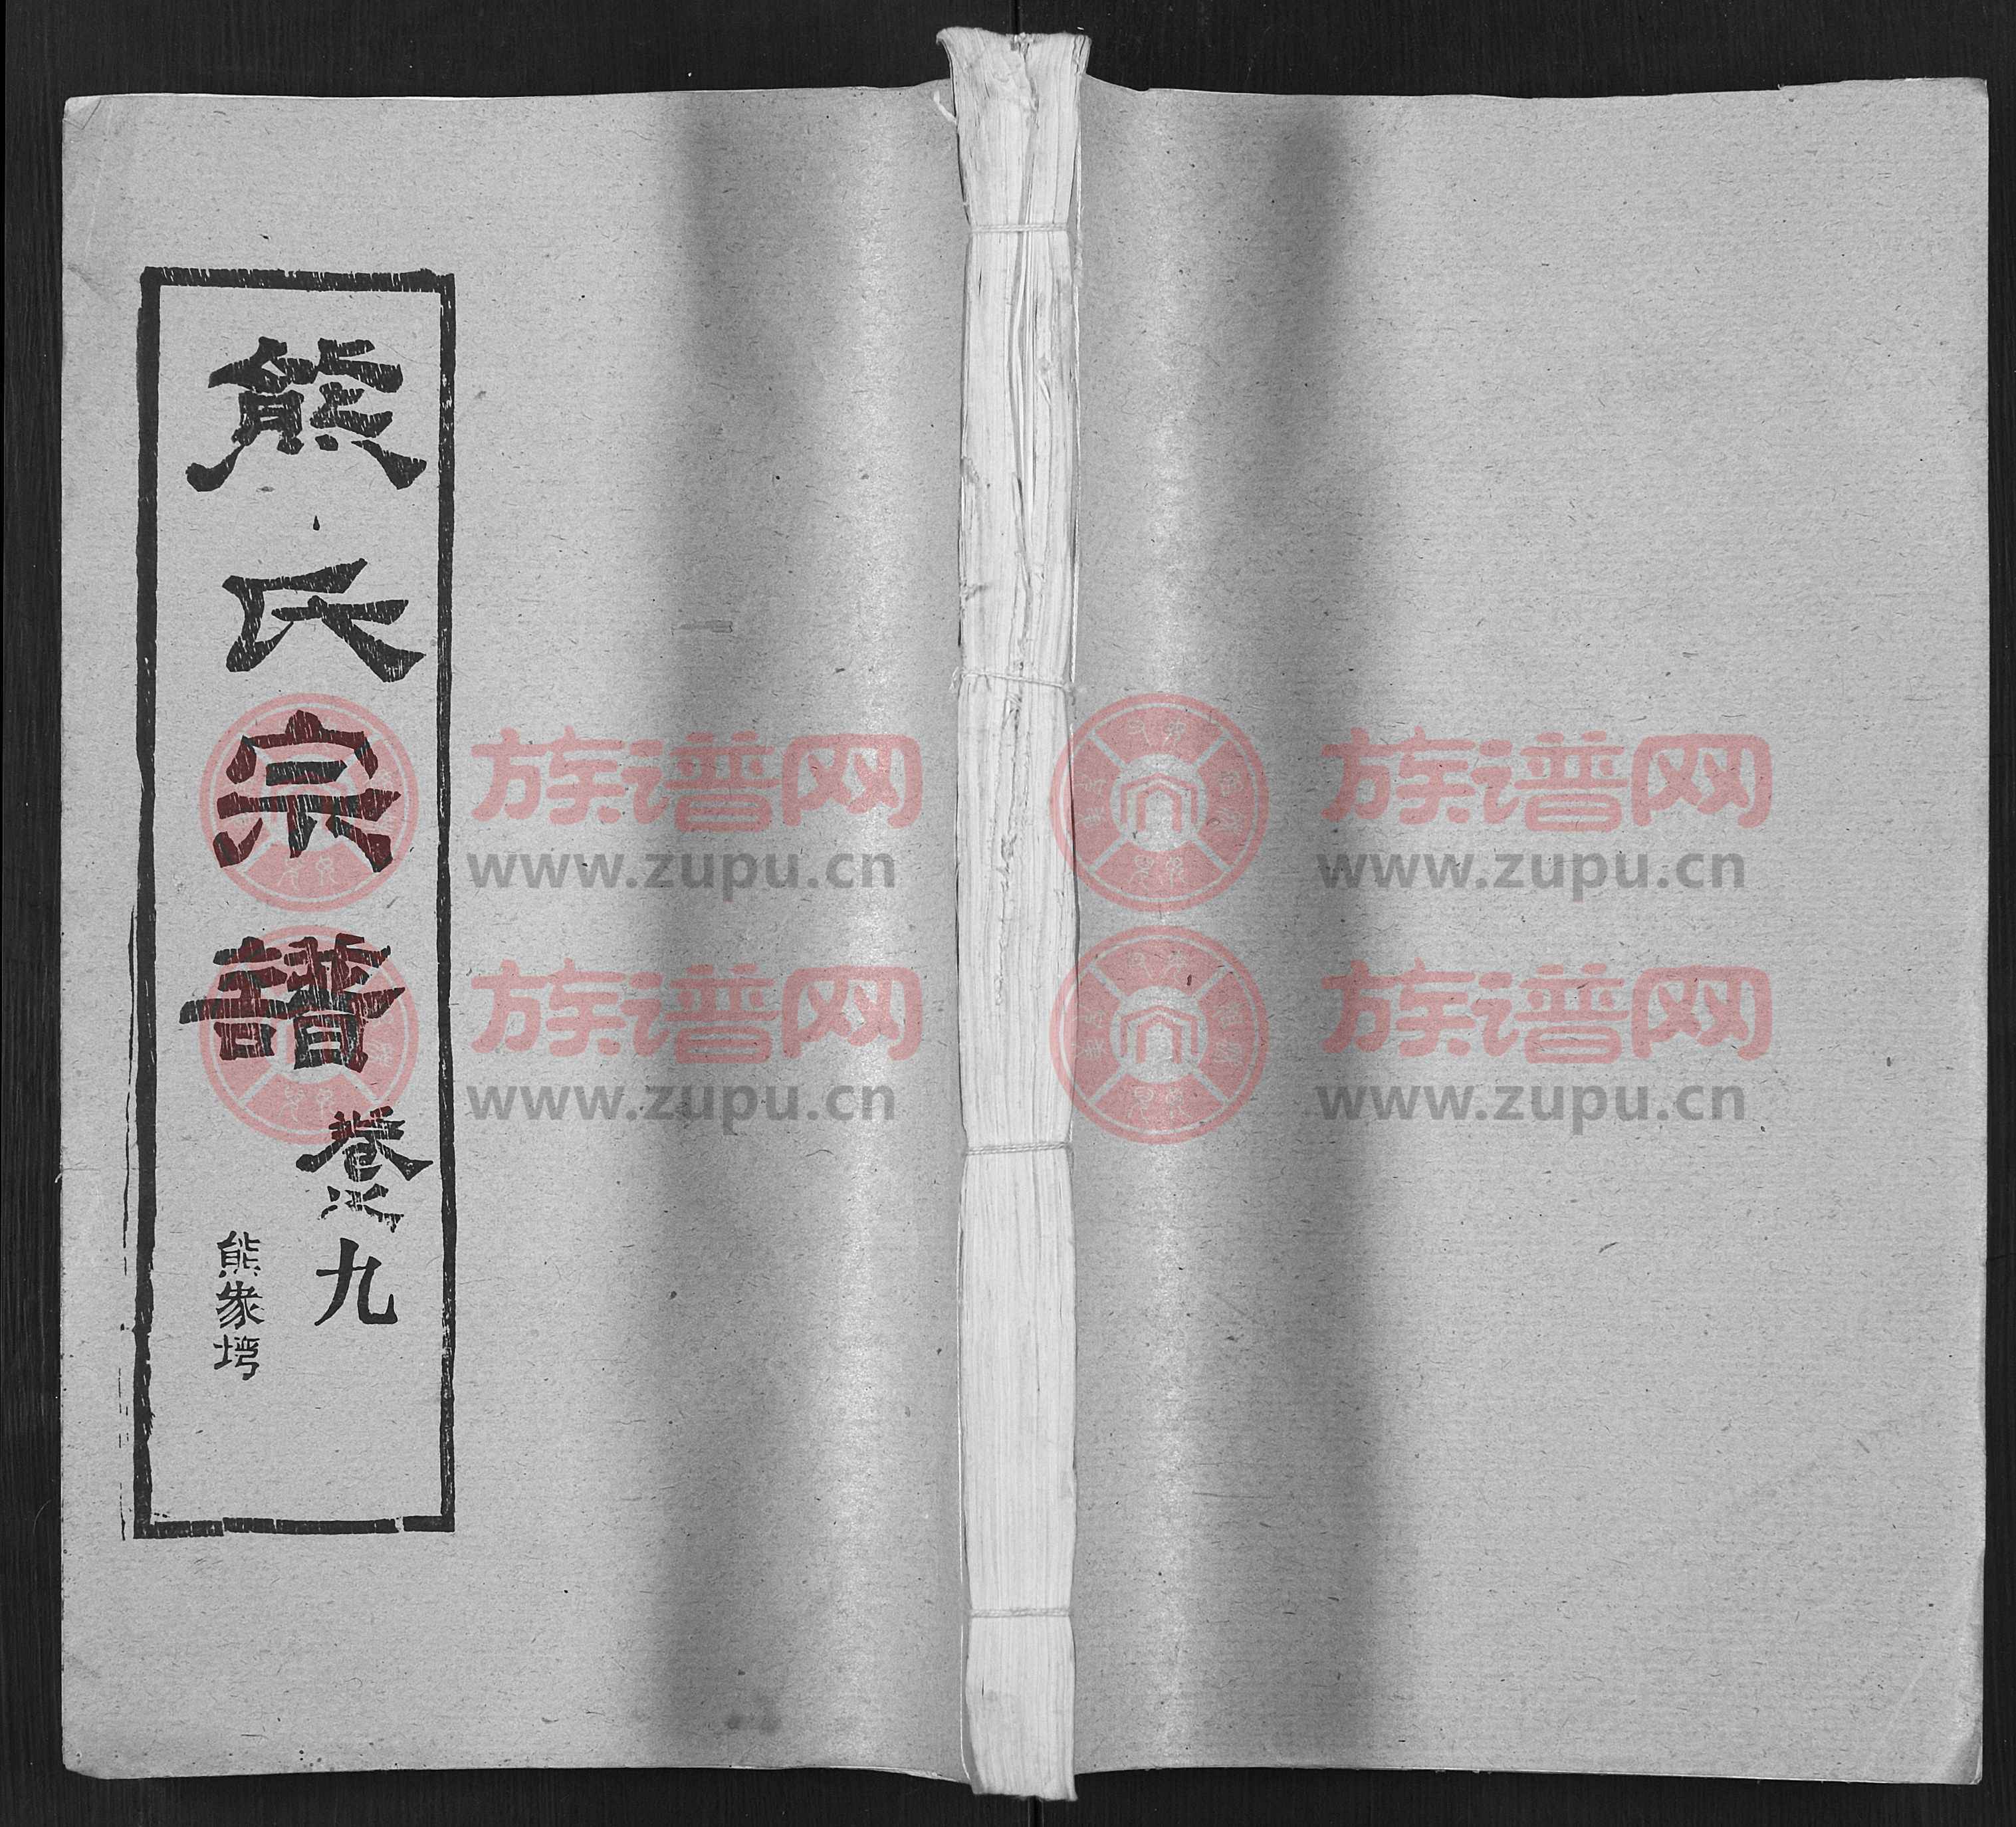 熊氏宗譜
卷之九
熊家塆
族谱网
www.zupu.cn
族谱网
www.zupu.cn
族谱网
www.zupu.cn
族谱网
www.zupu.cn